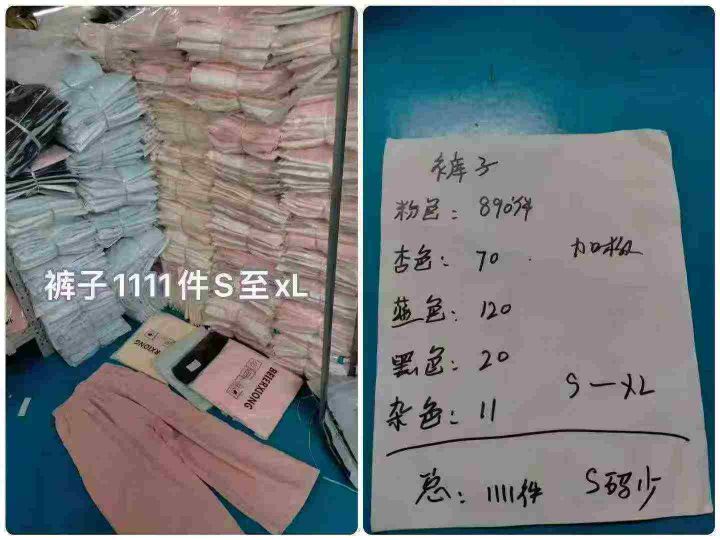 裤子1111件S至xL
RXIONG
BEIERXIONG
裤子
粉色：890件
杏色：70
加松
蓝色：120
黑色：20
S—XL
杂色：11
总：1111件 S码少